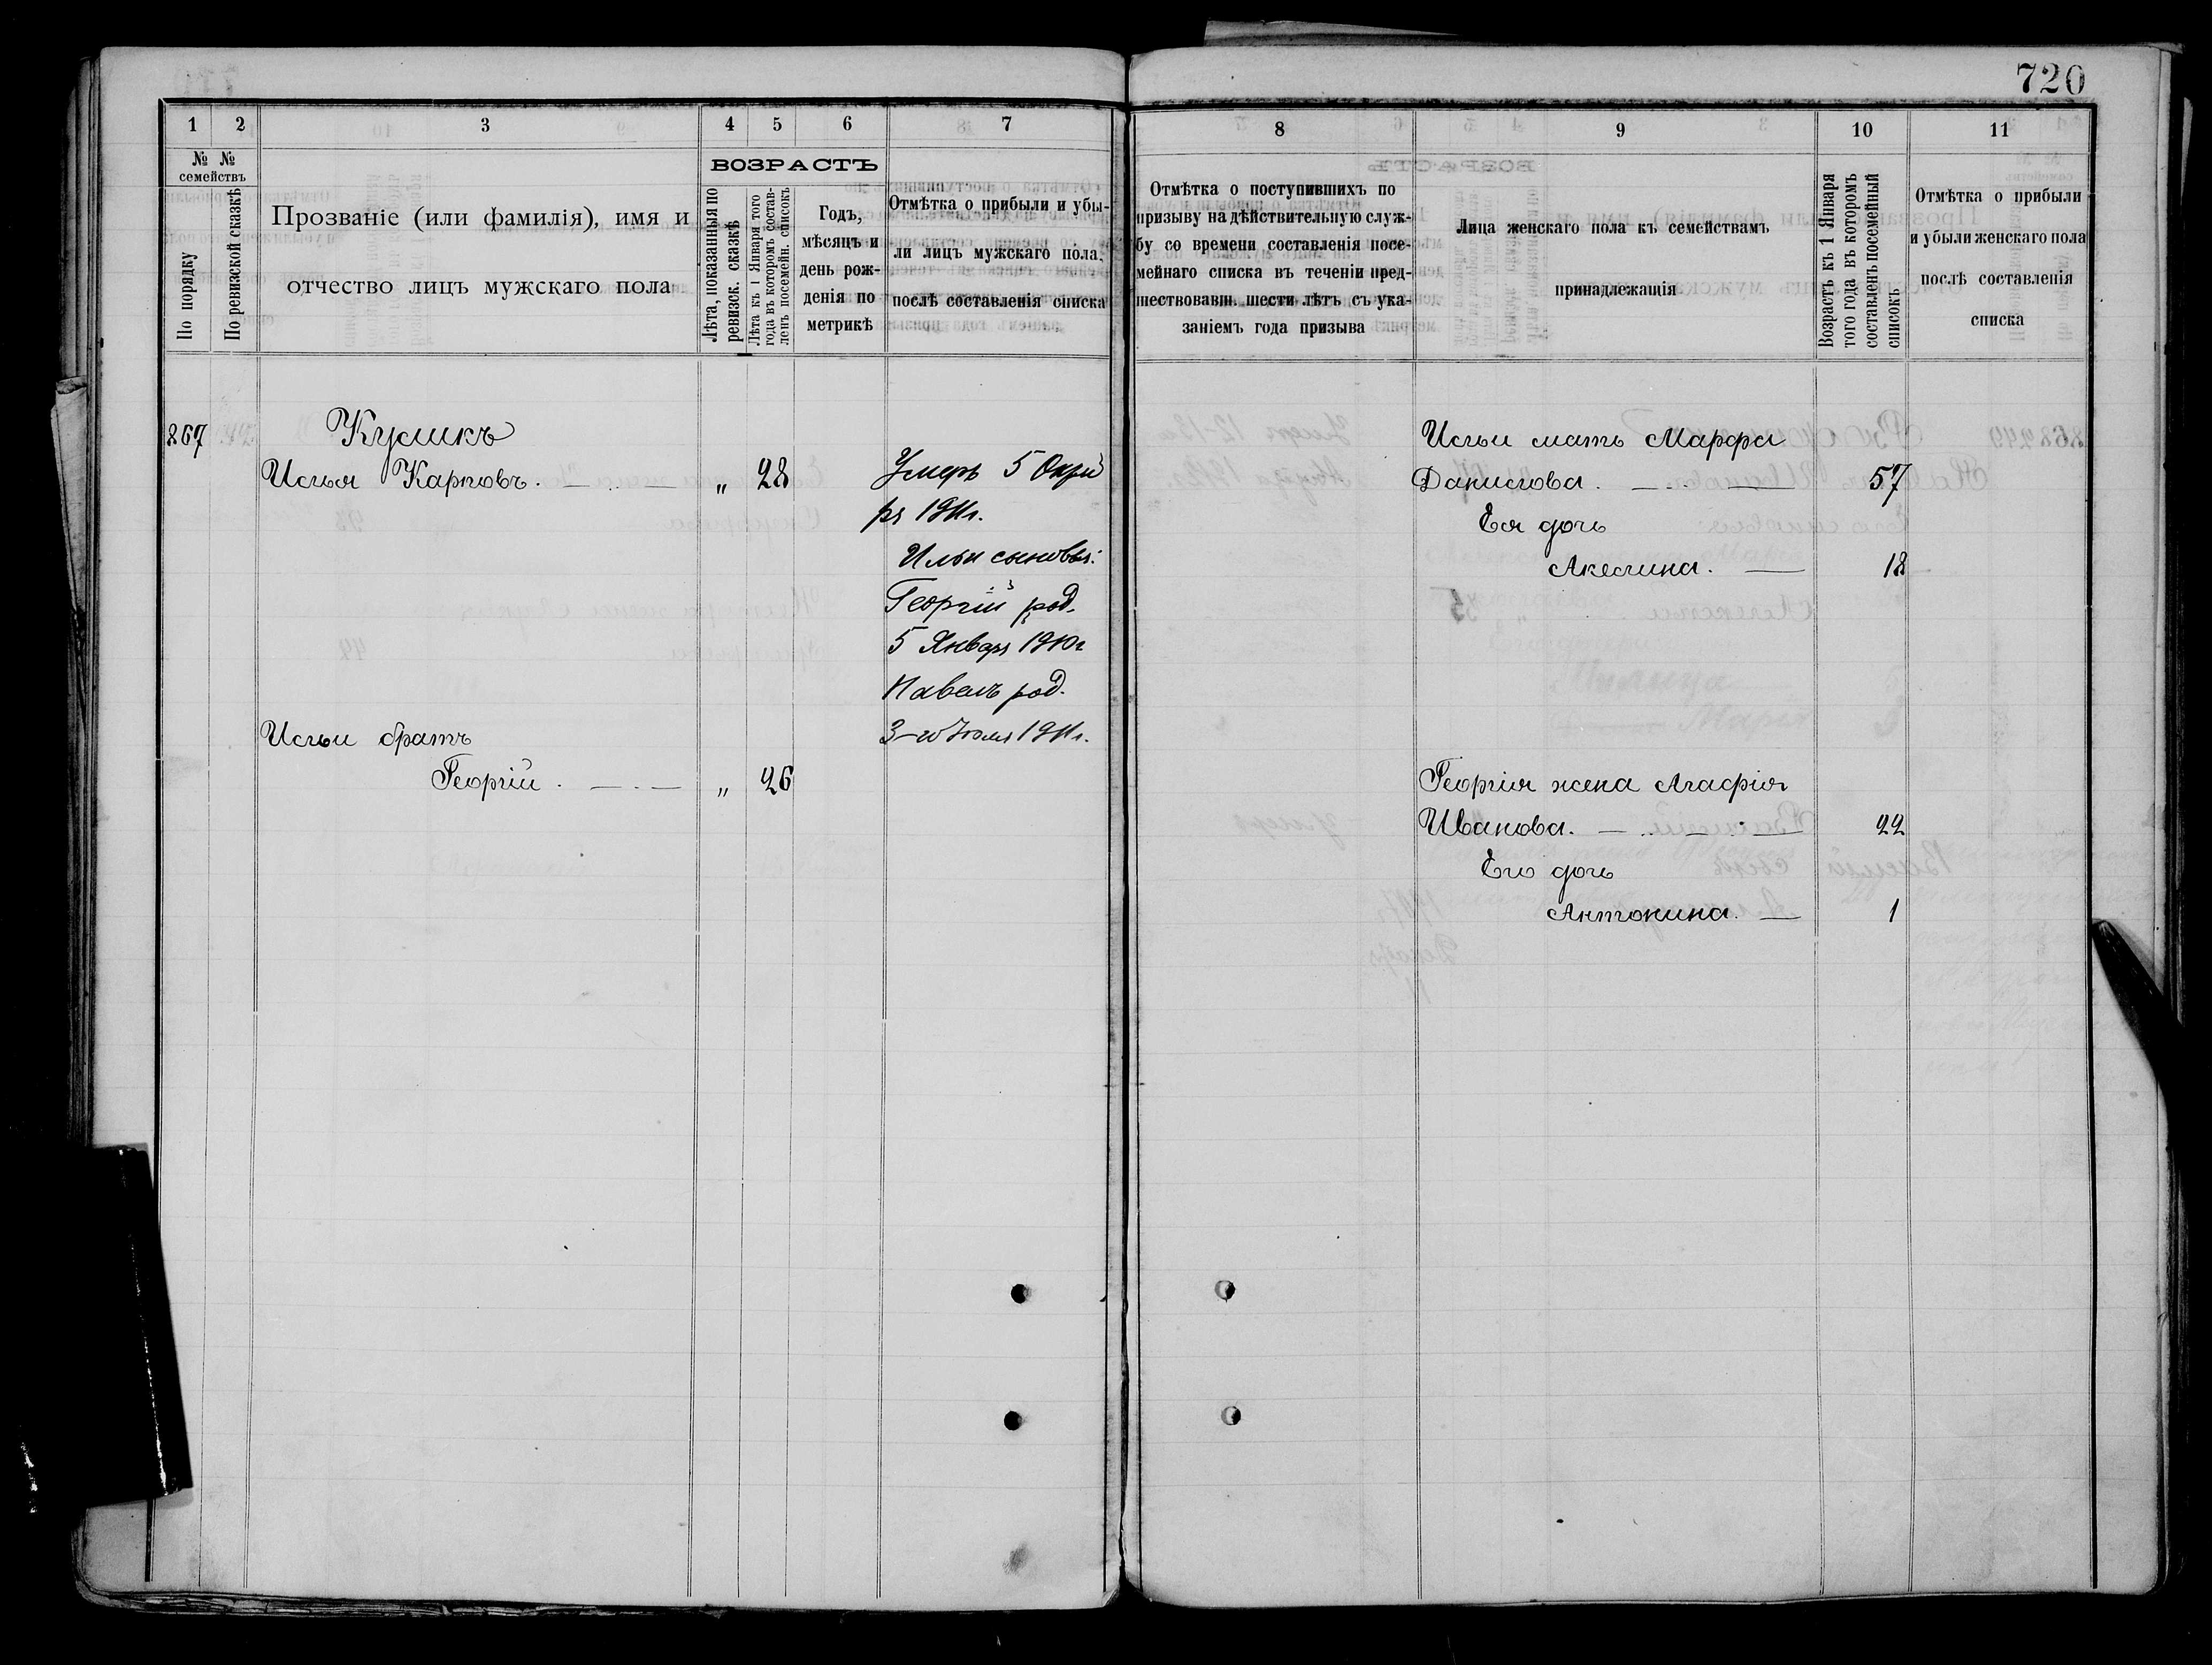 720
1 2 3 4 5 6 7
№ № семействъ
По порядку
По ревизской сказкѣ
Прозваніе (или фамилія), имя и
отчество лицъ мужскаго пола
ВОЗРАСТЪ
Лѣта, показанныя по
ревизск. сказкѣ
Лѣта къ 1 Января того
года въ которомъ состав-
ленъ посемейн. списокъ
Годъ,
мѣсяцъ и
день рож-
денія по
метрикѣ
Отмѣтка о прибыли и убы-
ли лицъ мужскаго пола,
послѣ составленія списка
867
Куликъ
Илья Карповъ. „ 28
Умеръ 5
1911г.
Ильи сыновья:
Георгій род.
5 Январ 1910г
Павелъ род.
3-го Іюля 1911г.
Ильи братъ
Георгій. „ 26
8 9 10 11
Отмѣтка о поступившихъ по
призыву на дѣйствительную служ-
бу со времени составленія посе-
мейнаго списка въ теченіи пред-
шествовавш. шести лѣтъ съ ука-
заніемъ года призыва
Лица женскаго пола къ семействамъ
принадлежащія
Возрастъ къ 1 Января
того года въ которомъ
составленъ посемейный
списокъ
Отмѣтка о прибыли
и убыли женскаго пола
послѣ составленія
списка
Ильи мать Марфа
Данилова. 57
Ея дочь
Акелина. 18
Георгія жена Агафія
Иванова. 22
Его дочь
Антонина. 1